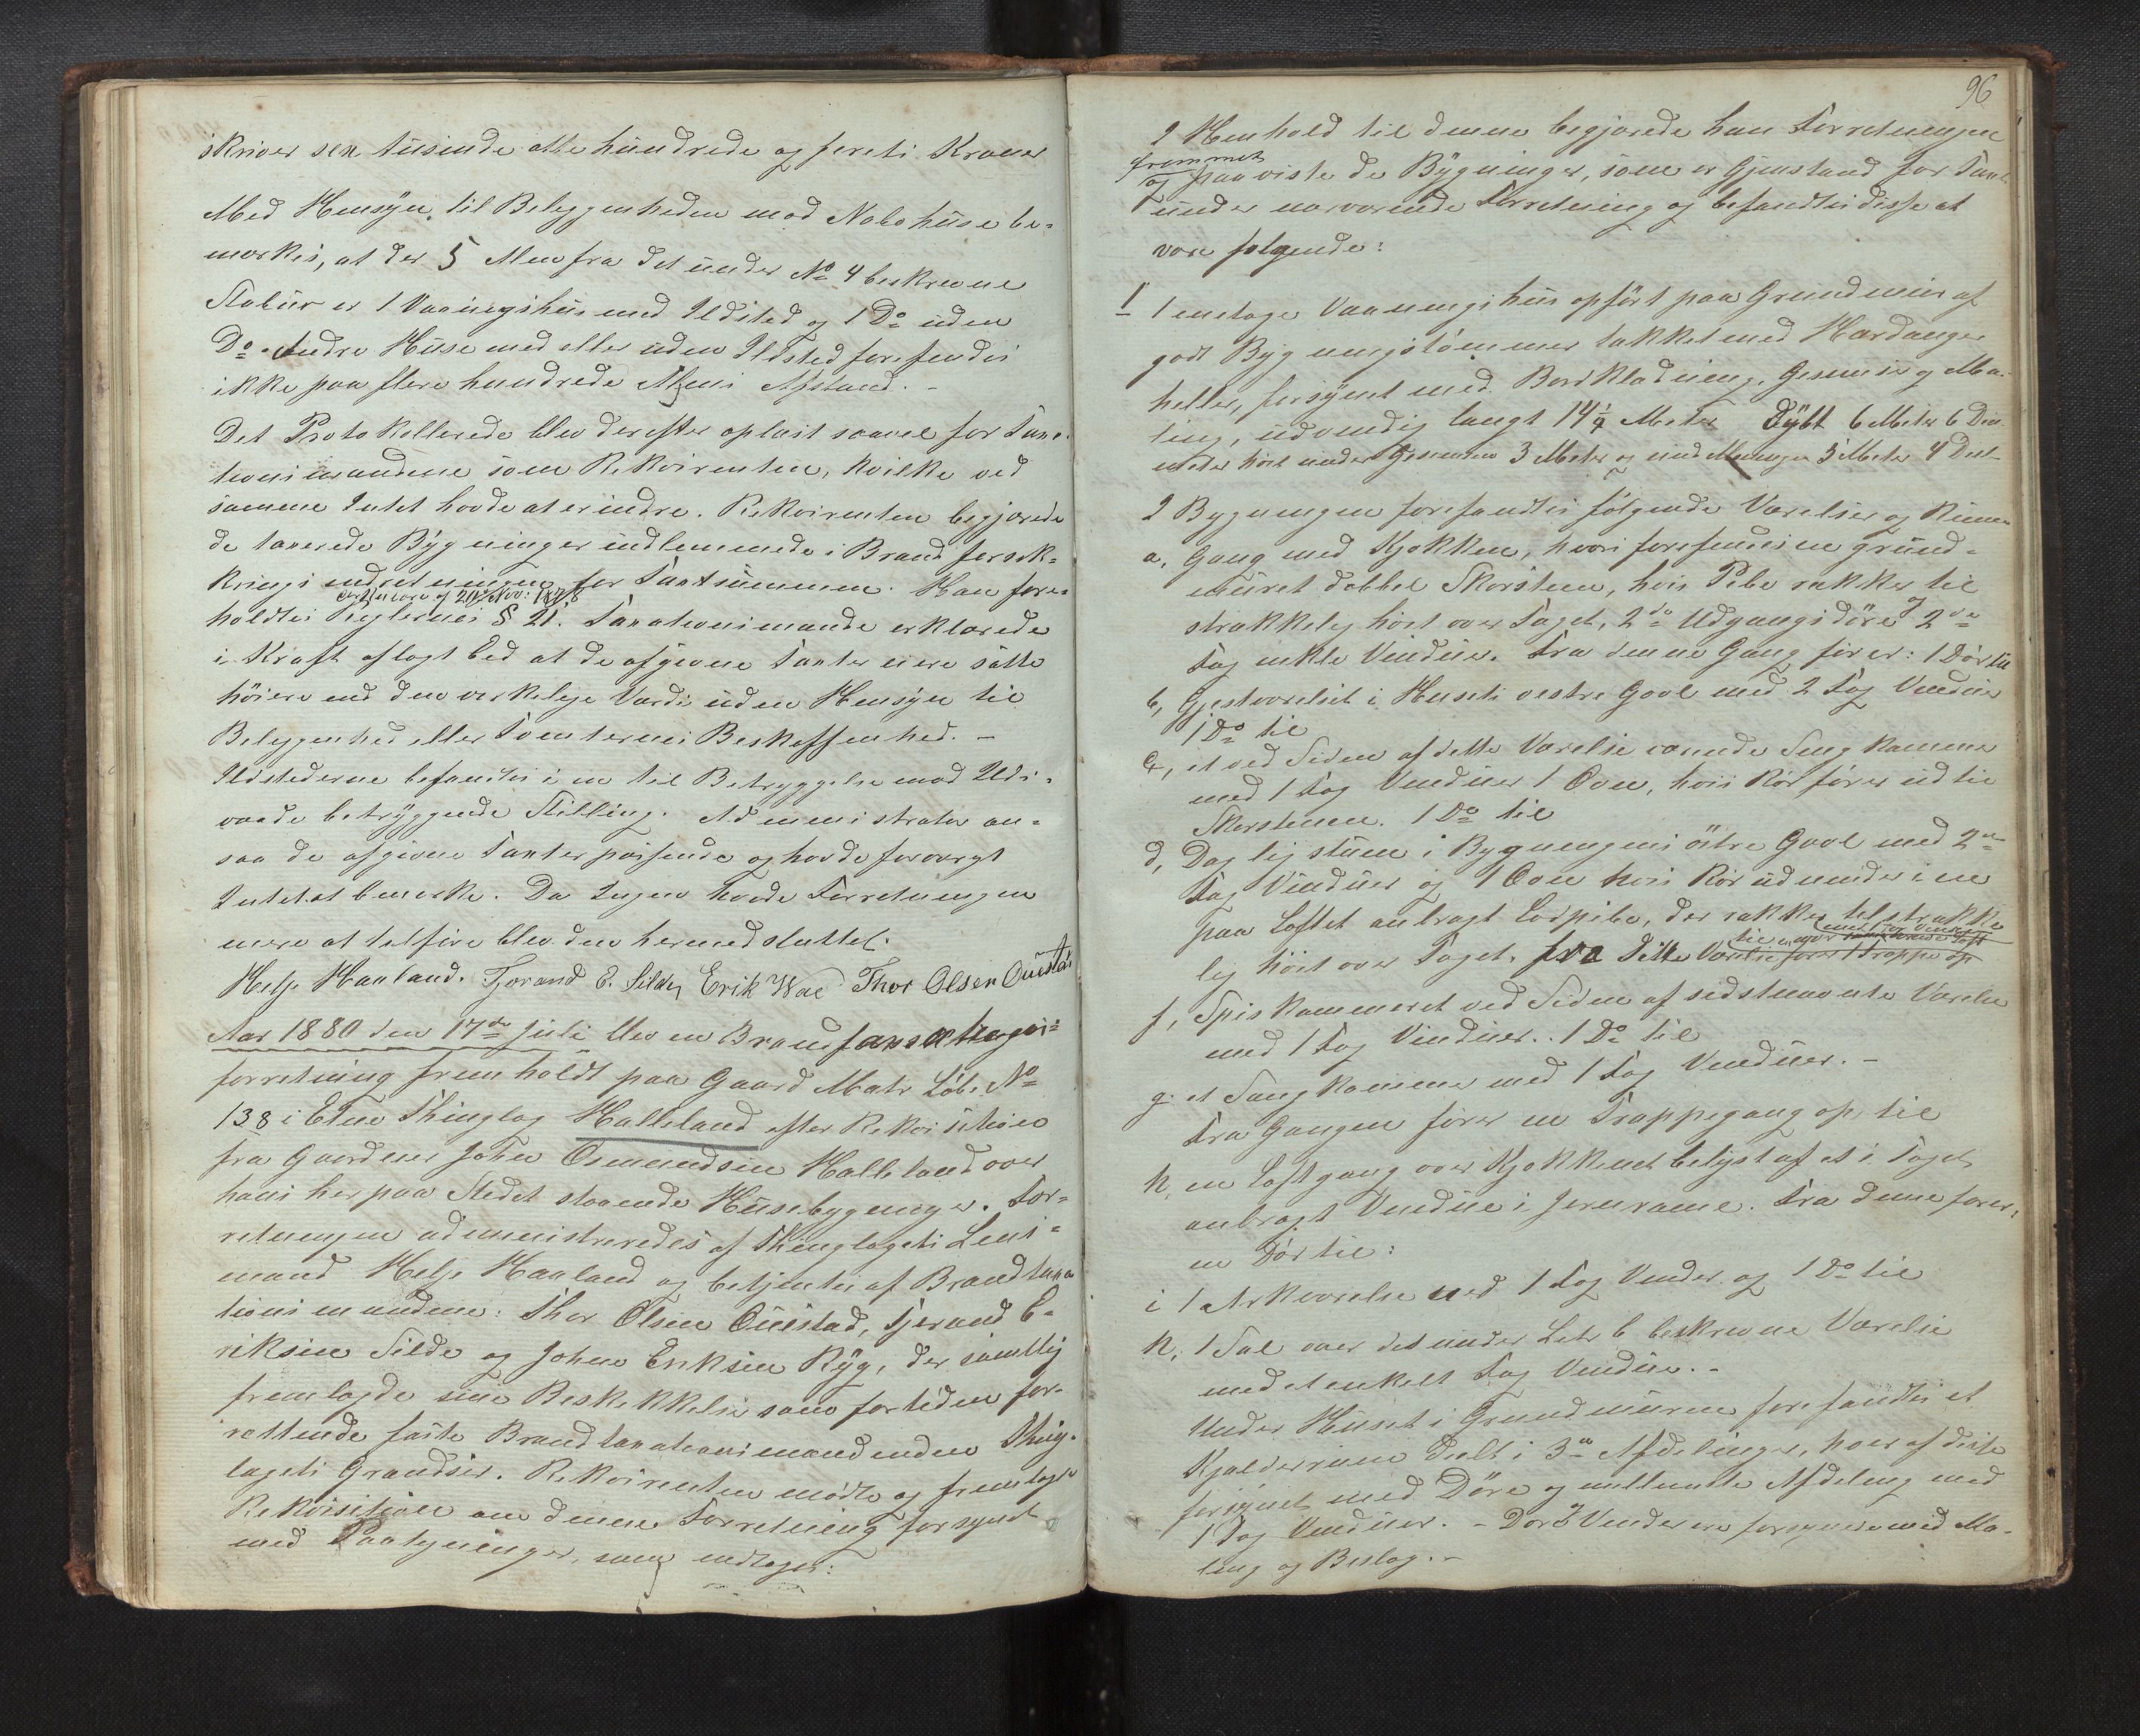 skriver sex tusinde otte hundrede og foreti Kroner
Med Hensyn til Beliggenheden mod Nabohuse be-
mærkes, at der 5 Alen fra det under No 4 beskrevne
Stabur er 1 Vaaningshus med Ildsted og 1 Do uden
Do. Andre Huse med eller uden Ildsted forefindes
ikke paa flere hundrede Alens Afstand. -
Det Protokollerede blev derefter oplæst saavel for Taxa-
tionsmændene som Rekvirenten, hvilke ved
samme Intet havde at erindre. Rekvirenten begjærede
de taxerede Bygninger indlemmede i Brandforsik-
krings indretningen for Taxtsummen. Han fore-
af 20de Nov: 1878
holdtes Reglernes § 21. Taxationsmænde erklærede
i Kraft aflagt Eed at de afgivne Taxter ei ere satte
høiere end den verkelige Værdi uden Hensyn til
Beliggenhed eller Tomternes Beskaffenhed. -
Ildstederne befandtes i en til Betryggelse mod Ilds-
vaade betryggende Stilling. Administrator an-
saa de afgivne Taxter passende og havde forøvrigt
Intet at bemærke. Da Ingen havde Forretningen
mere at tilføre blev den hermed sluttet.
Helje Haaland. Tjerand E. Silde, Erik Wae Thor Olsen Ouestad
Aar 1880 den 17de Juli blev en Brandtaxations-
forretning fremholdt paa Gaard Matr Løbe No
138 i Etne Thinglag Halleland efter Rekvisition
fra Gaardmn John Osmundsen Halleland over
hans her paa Stedet staaende Husebygninger. For-
retningen administreredes af Thinglagets Lens-
mand Helje Haaland og betjentes af Brandtaxa
tionsmændene: Thor Olsen Ouestad, Tjerand E-
riksen Silde og Johne Eriksen Ryg, der samtlig
fremlagde sine Beskikkelser som for tiden for-
rettende faste Brandtaxationsmænd inden Thing-
lagets Grændser. Rekvirenten mødte og fremlagde
Rekvisition om denne Forretning forsynet
med Paategninger, som indtages:
96
I Henhold til denne begjærede han Forretningen
fremmet
og paaviste de Bygninger, som er Gjenstand for Taxt
under nærværende Forretning og befandtes disse at
være følgende:
1 1 enetages Vaaningshus opført paa Grundmur af
godt Bygningstømmer takket med Hardanger
heller, forsynet med Bordklædning, Gesimser og Ma-
ling, udvendig langt 14 1/4 Meter Dybt 6 Meter 6 Deci
meter høit under Gesimsen 3 Meter og under Mønningen 5 Meter 4 Decit
I Bygningen forefandtes følgende Værelser og Rum:
a, Gang med Kjøkken, hvori forefindes en grund-
muret dobbel Skorsten, hvis Pibe rækker til
strækkelig høit over Taget, 2de Udgangsdøre og 2de
Fag enkle Vinduer. Fra denne Gang fører: 1 Dør til
b, Gjestværelset i Husets vestre Gavl med 2 Fag Vinduer
1 Do til
c, et ved Siden af dette Værelse værende Sengkammer
med 1 Fag Vinduer 1 Ovn, hvis Rør fører ud til
Skorstenen. 1 Do til
d, Daglig stuen i Bygningens østre Gavl med 2de
Fag Vinduer og 1 Ovn hvis Rør udmunder i en
paa Loftet anbragt Lodpibe, der rækker til strække
lig høit over Taget. fra dette Værelse fører 1 Trappe op
f, Spiskammeret ved Siden af sidstnævnte Værelse
med 1 Fag Vinduer. 1 Do til
g. et Sengkammer med 1 Fag Vinduer. -
Fra Gangen fører en Trappegang op til
h, en Loftgang over Kjøkkenet belyst af et i Taget
anbragt Vindue i Jernrame. Fra denne fører,
en Dør til:
i 1 Arkværelse med 1 Fag Vinder og 1 Do til
k, 1 Sal over det under Litr b beskrevne Værelse
med et enkelt Fag Vindue. -
Under Huset i Grundmuren forefandtes et
Kjælderrum delt i 3de Afdelinger, hver af disse
forsynet med Døre og mellemste Afdeling med
1 Fag Vinduer. - Dør & Vinder ere forsynede med Ma-
ling og Beslag. -